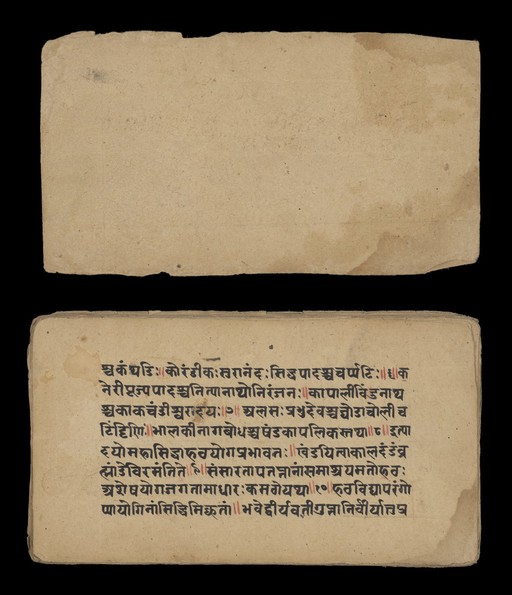 श्चकंथडिः॥कोरंटीकःसुरानंदःसिद्धपादश्चचर्पटिः॥६॥क
नेरीपूज्यपादश्चनित्यानाथोनिरंजनः॥कापालीविंदुनाथ
श्चकाकचंडीश्चरादयः॥७॥अलमःप्रभुदेवश्चघोडाचोलीच
टिंटिणिः॥भालकीनागबोधश्चषंडकापलिकस्तथा॥८॥इत्या
दयोमहासिद्धाहठयोगप्रभावतः॥खंडयित्वाकालदंडंब्र
ह्मांडेविचरंतिते॥९॥संसारतापतप्तानांसमाश्रयमतोहठः
अशेषयोगजगतामाधारःकमठोयथा॥१०॥हठविद्यापरंगो
प्यायोगिनांसिद्धिमिच्छतां॥भवेद्वीर्यवतीगुप्तानिर्वीर्यातुप्र